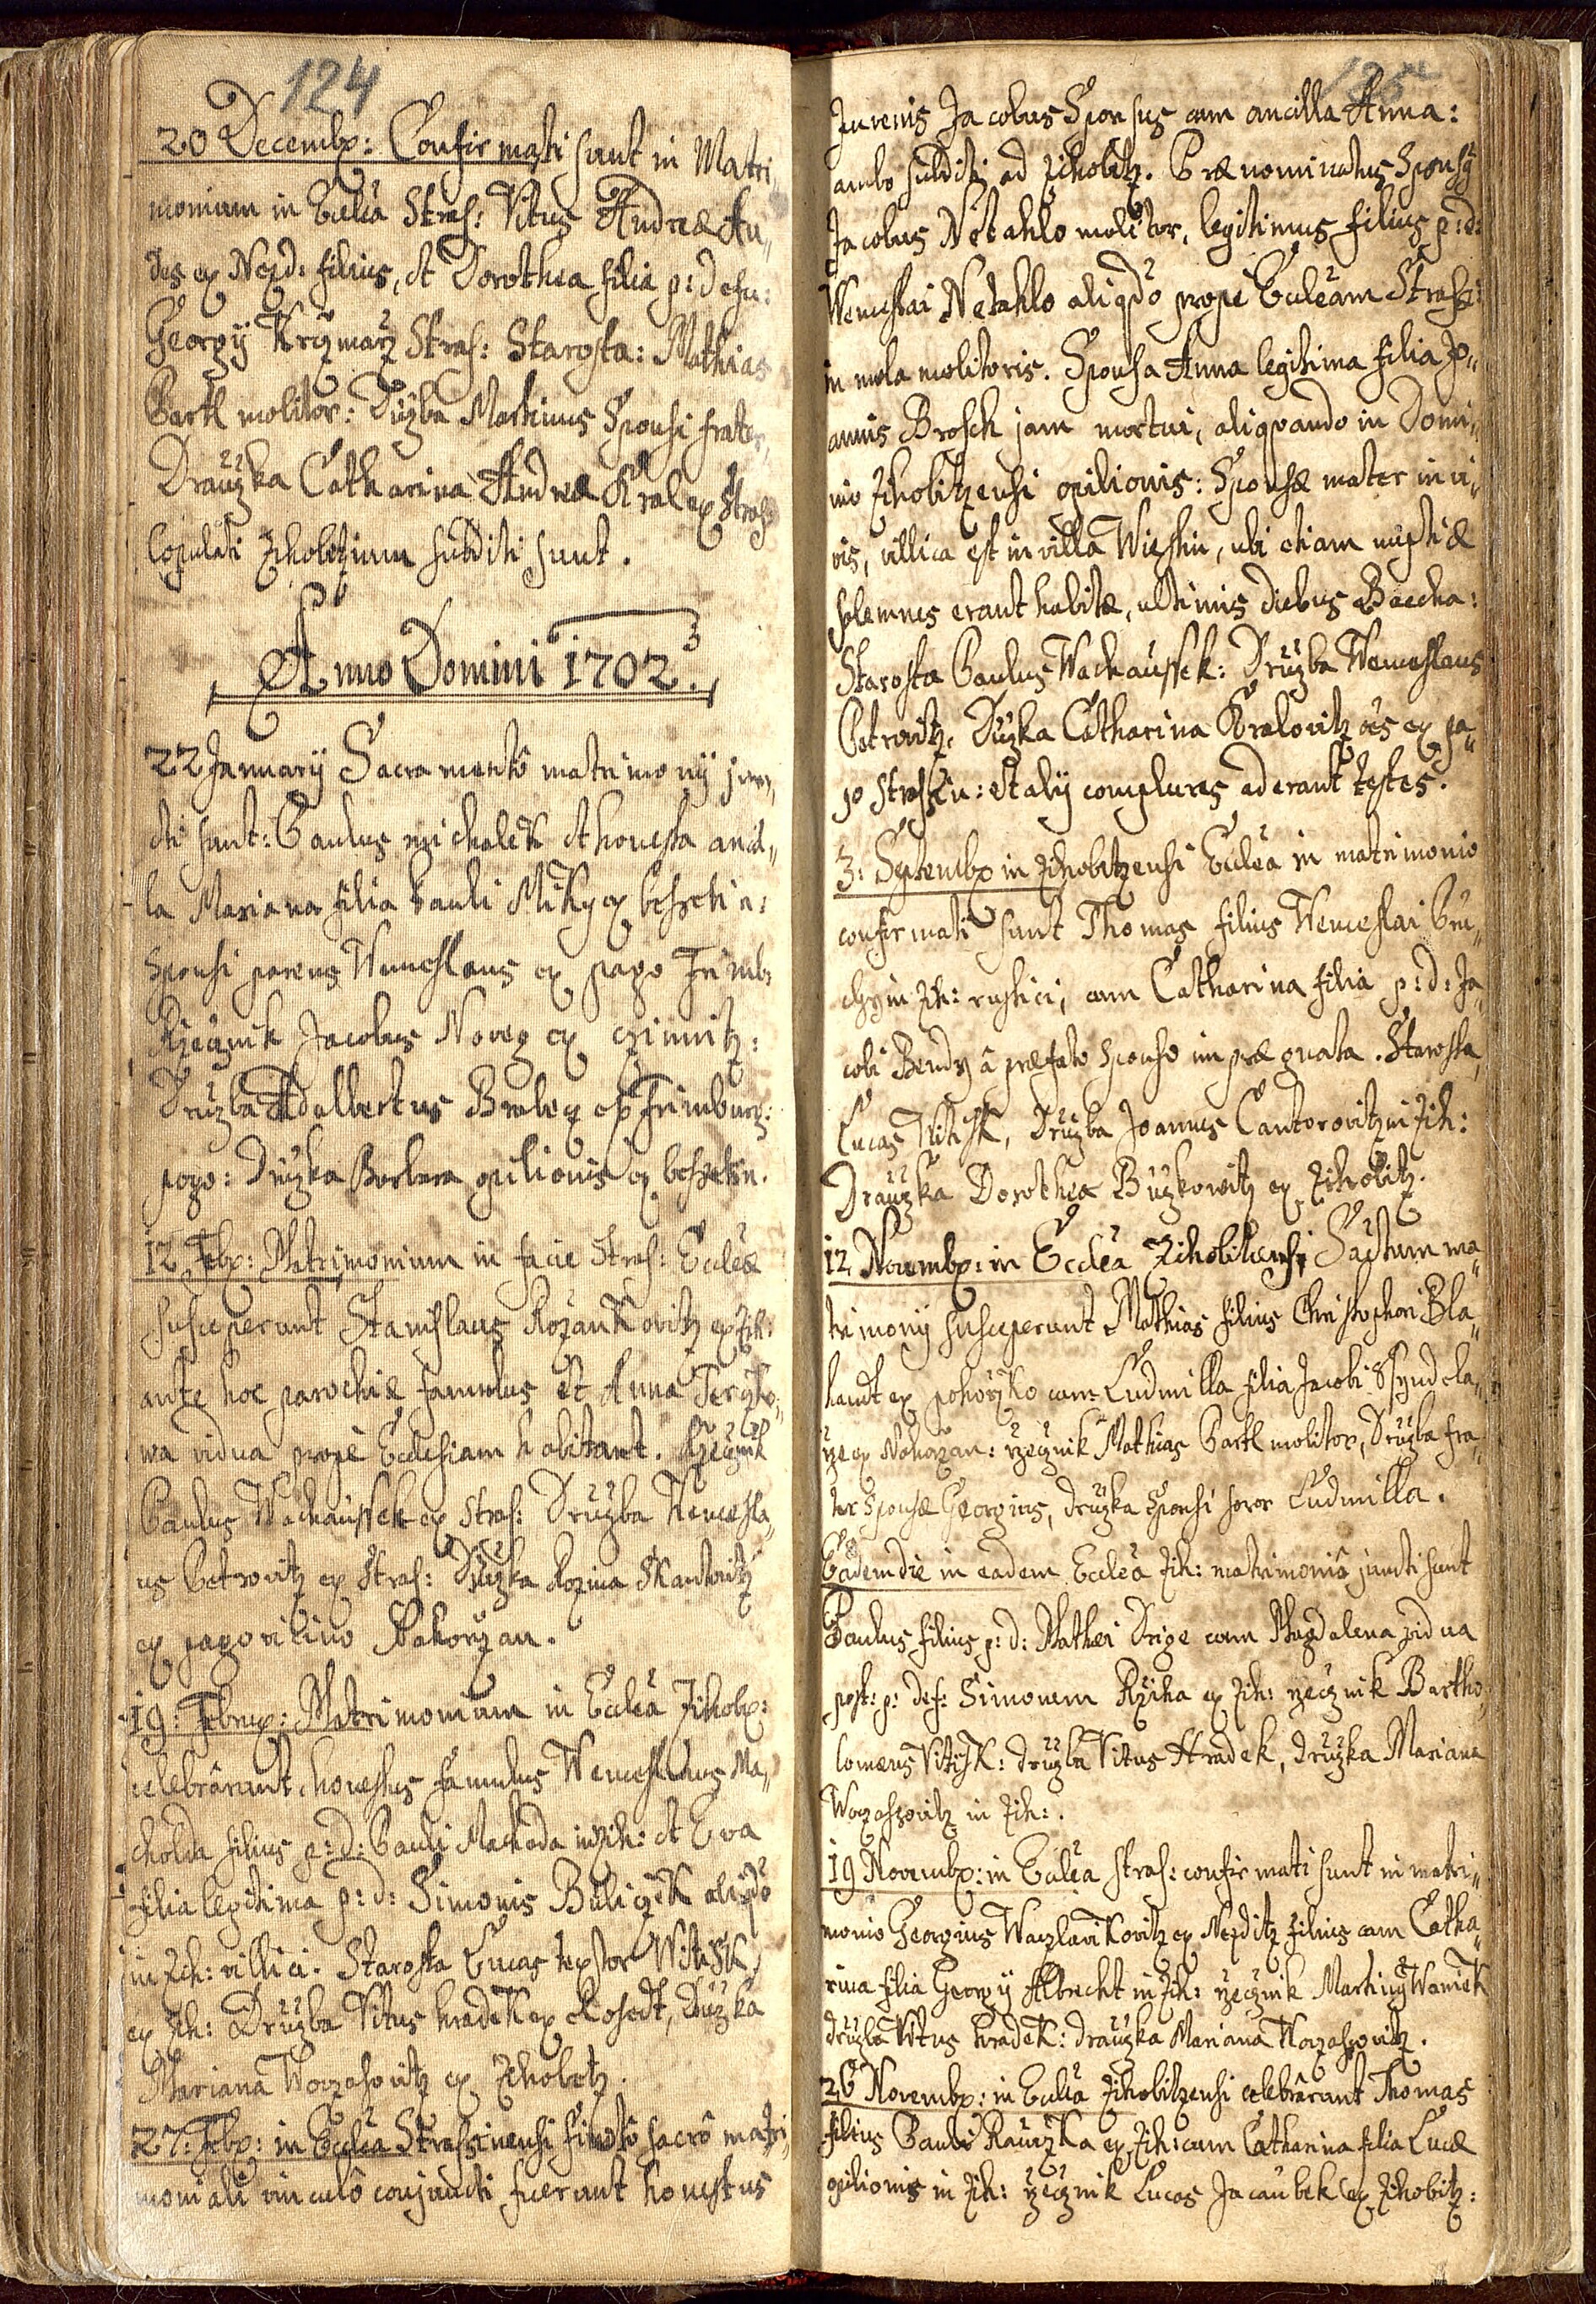 124
20 Decembr: Confirmati sunt in Matri„
monium in Eccleâ Stras: Vitus Andreæ An„
des ex Nezd: filius, et Dorothea filia p: defu:
Georgij Krczmarz Stras: Starosta: Mathias
Bartl molitor: Družba Martinus Sponsi frater,
Drauzka Catharina Andreæ Kral ex Stras:
Copulati Zihobetzium subditi sunt.
Anno Domini 1702.3
22 January Sacramentô matrimonij jun„
cti sunt: Paulus michalek et honesta ancil„
la Mariana filia Pauli Miky ex beschetin:
Sponsi parens Wenceslaus ex pago Frimb:
Rzeznik Jacobus Novez ex czimitz:
Družba Adalbertus Bralez ex Frimburg:
pago: Družka Barbara opilionis ex beschetin.
12 Febr: Matrimonium in facie Stras: Eccleæ
susceperunt Stanislaus Rozankovitz ex Zih:
ante hoc parochiæ famulus et Anna
wa vidua prope Ecclesiam habitant. Rzecznik
Paulus Wachaussek ex Stras: Družba Wencesla„
us Petrovitz ex Stras: Družka Rozina Skantovitz
ex pago vicino Nahorzan.
19: Febru: Matrimonium in Eccleâ Zihob:
celebrârunt, honestus famulus Wenceslaus Ma„
cholda filius p: d: Pauli Machoda in Zih: et Eva
filia legitima p: d: Simonis Buliczek aliqdo
in Zih: villici. Starosta Lucas textor Witisk
ex Zih: Družba Vitus hradek ex Rosedt, Družka
Mariana Worzasovitz ex Zihobetz.
27: Febr: in Ecclea Strassinensi firmo sacrô matri„
moniali vinculô conjuncti fuerunt honestus
125
Juvenis Jacobus Sponsus cum ancilla Anna:
ambo subditi ad Zihobitz. Prænominatus Sponsg
Jacobus Netahlo molitor, legitimus filius p: d:
Wenceslai Netahlo aliqdo prope Eccleam Strass:
in mola molitoris. Sponsa Anna legitima filia Jo„
annis Brosch jam mortui, aliquando in Domi„
nio Zihobitzensi opilionis: Sponsæ mater in vi„
vis, villica est in villa Wiestin, ubi etiam nuptiæ
solemnes erant habitæ, ultimis diebus Baccha:
Starosta Paulus Wachaussek: Družba Wenceslaus
Petrovitz. Družka Catharina Kralovitz oes ex pa„
go Strassin: et alij complures aderant testes.
3: Septembr in Zihobetzensi Eccleâ in matrimonio
confirmati sunt Thomas filius Wenceslai
in Zih: rustici, cum Catharina filia p: d: Ja„
cobi Bendy â præfato sponso imprægnata. Starosta
Lucas Witisk, Družba Joannes Cantorovitz in Zih:
Drauzka Dorothea Buzkowitz ex Zihobitz.
12 Novembr: in Eccleâ Zihobitzensi Sactum ma„
trimonij susceperunt Mathias filius Christophori Bla„
handt ex pohorzko cum Ludmilla filia Jacobi Spindela„
rze ex Nahorzan: rzecznik Mathias Bartl molitor, Družba fra„
ter Sponsæ Georgius, družka Sponsi soror Ludmilla.
Eâdem die in eadem Eccleâ Zih: matrimoniô juncti sunt
Paulus filius p: d: Mathæi Drige cum Magdalena vidua
post: p: def: Simonem Rziha ex Zih: rzecznik Bartho„
lomæus Vitisk: družba Vitus Hradek, družka Mariana
Worzasovitz in Zih:.
19 Novembr: in Ecclea stras: confirmati sunt in matri„
monio Georgius Waczlavikovitz ex Nezditz filius cum Catha„
rina filia Georgij Albrecht in Zih: rzecznik Martinus Waniek
družba Vitus hradek: drauzka Mariana Worzasovitz.
26 Novembr: in Ecclea Zihobitzensi celebrârunt Thomas
filius Pauli Rauczka ex Zih: cum Catharina filia Lucæ
opilionis in Zih: rzecznik Lucas Jacaubek ex Zihobitz: